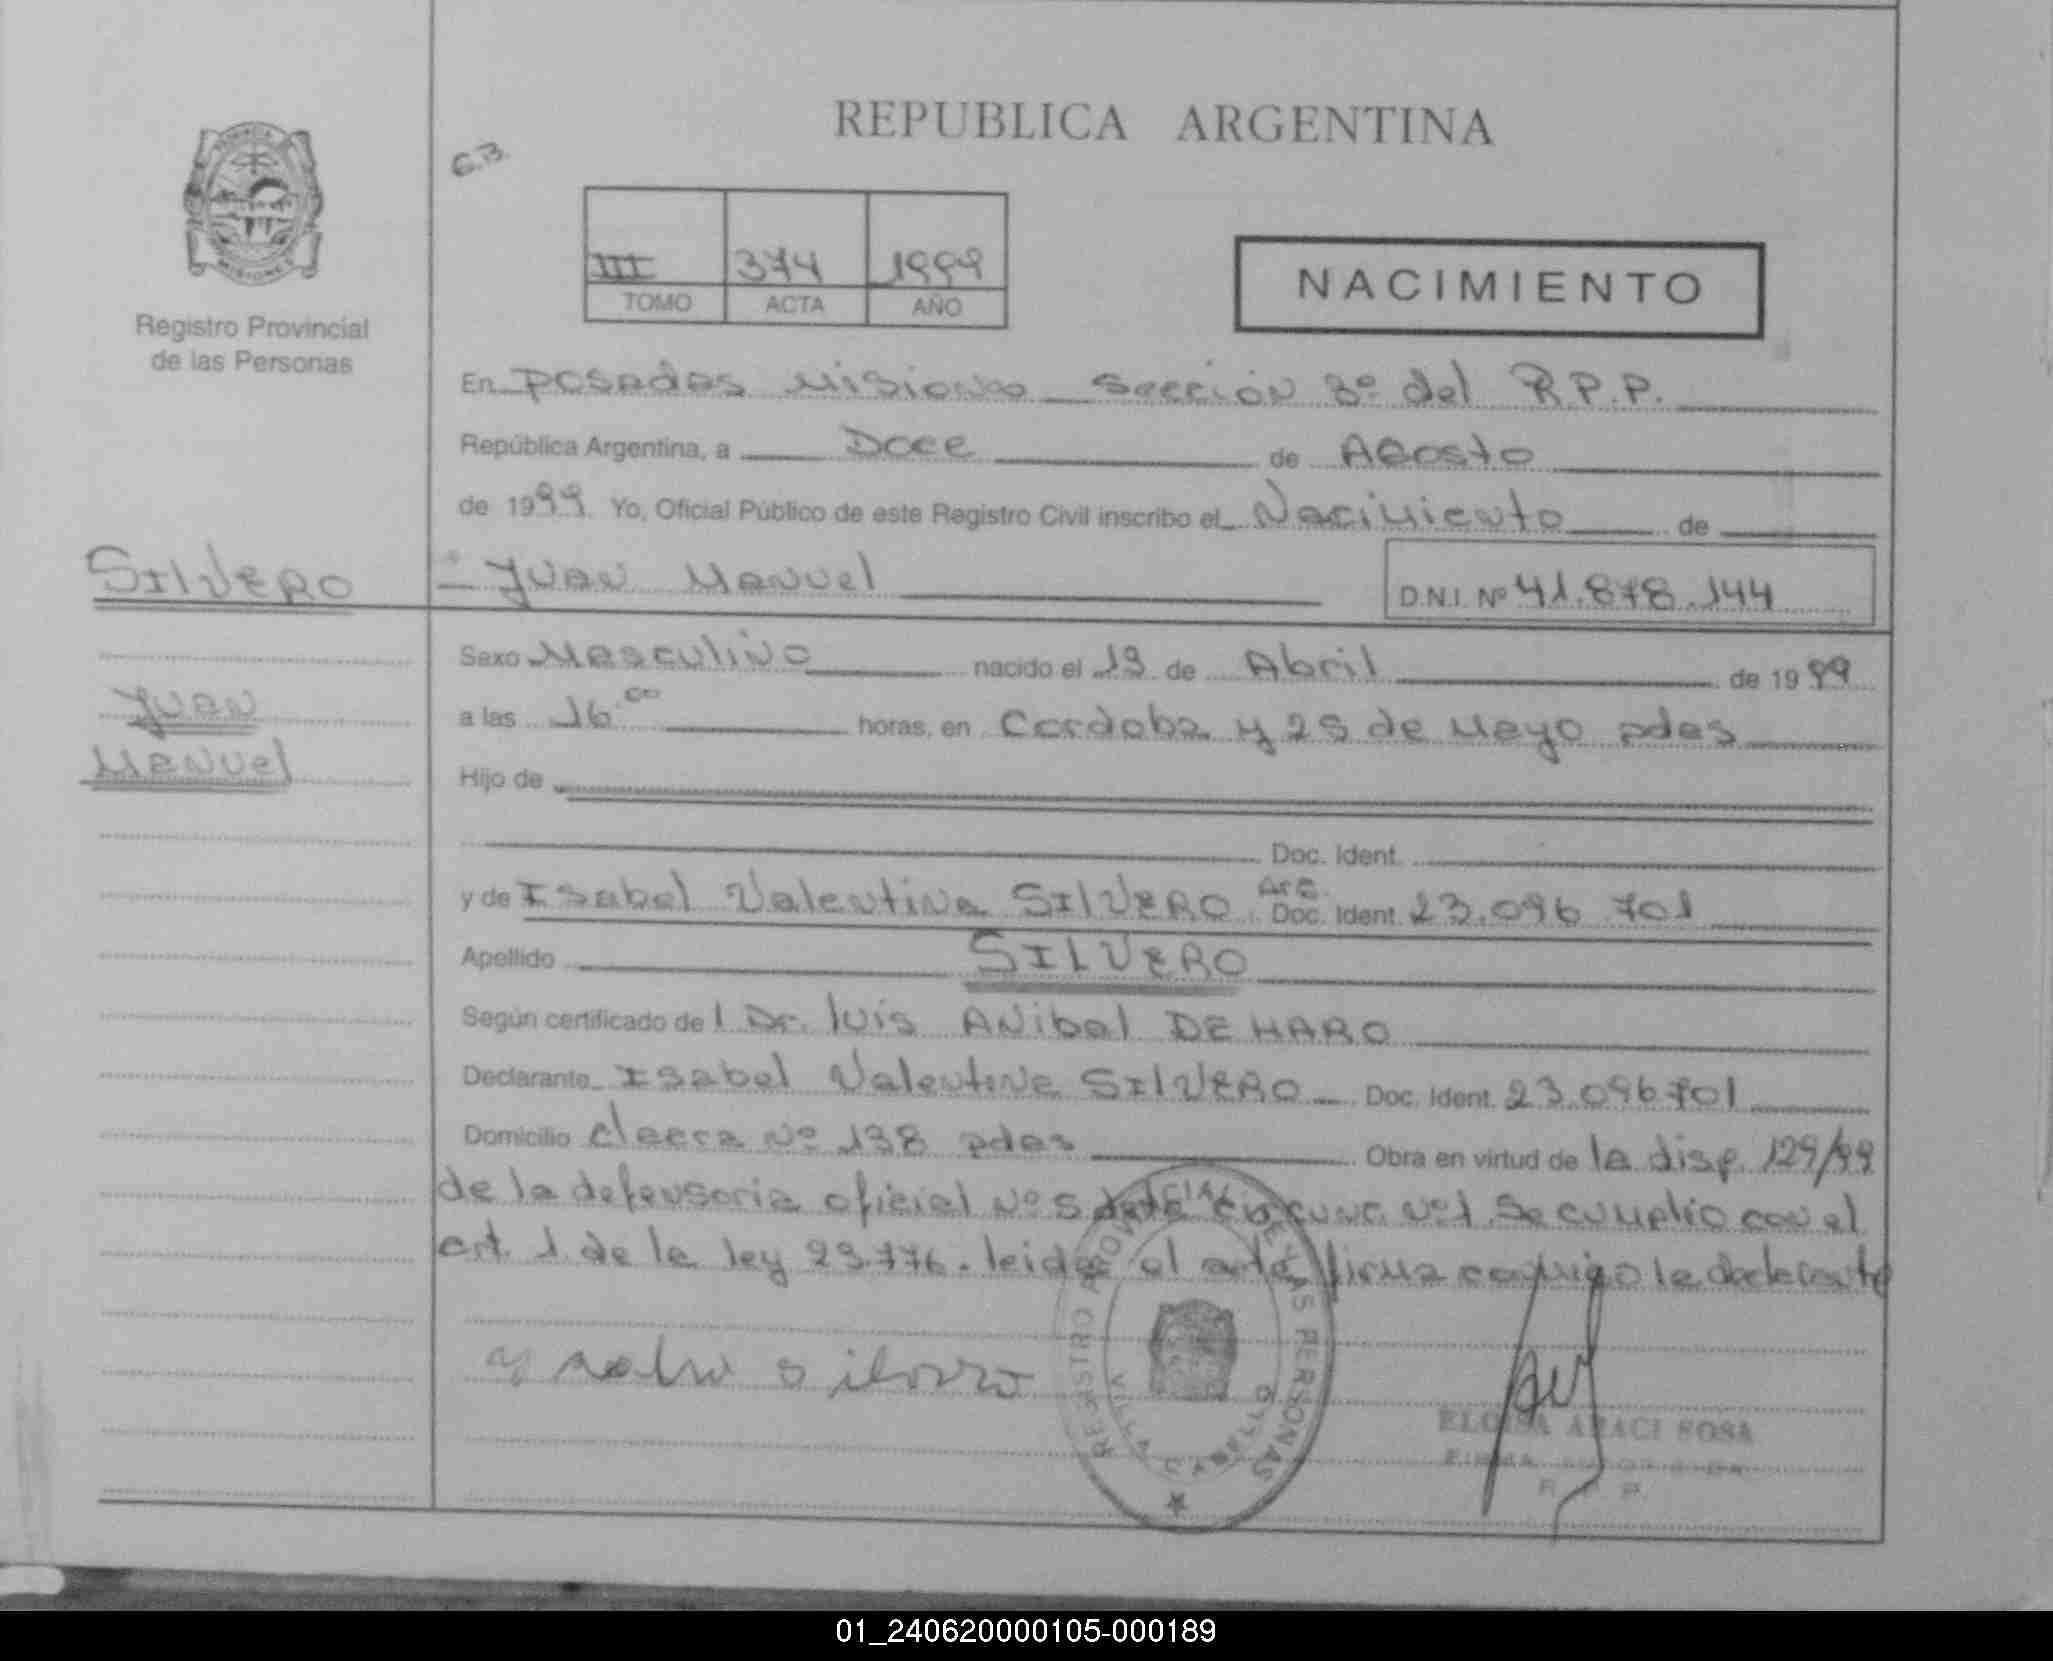 REPUBLICA ARGENTINA
G.B.
III 374 1999
TOMO ACTA AÑO
NACIMIENTO
PROVINCIA
MISIONES
Registro Provincial
de las Personas
En Posadas Misiones Sección 3º del R.P.P.
República Argentina, a Doce de Agosto
de 1999. Yo, Oficial Público de este Registro Civil inscribo el Nacimiento de
SILVERO
Juan Manuel
D.N.I. Nº 41.878.144
Juan
Manuel
Sexo Masculino nacido el 19 de Abril de 1999
a las 16:00 horas, en Cordoba y 25 de Mayo pdas
Hijo de
Doc. Ident.
y de Isabel Valentina SILVERO Arg. Doc. Ident. 23.096.701
Apellido SILVERO
Según certificado del Dr. Luis Anibal DE HARO
Declarante Isabel Valentina SILVERO Doc. Ident. 23.096701
Domicilio chacra Nº 138 pdas Obra en virtud de la disp. 129/99
de la defensoria oficial Nº 5 de la circunc. Nº 1. Se cumplio con el
art. 1 de la ley 23.776. leida el acta firma conmigo la declarante
REGISTRO PROVINCIAL DE LAS PERSONAS
ELOISA ARACI SOSA
FIRMA AUTORIZADA
R. P. P.
01_240620000105-000189